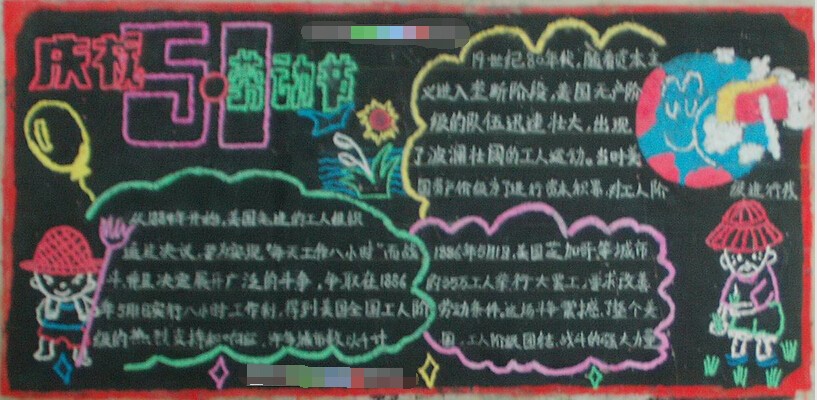 庆祝5·1劳动节
19世纪80年代,随着资本主
义进入垄断阶段,美国无产阶
级的队伍迅速壮大,出现
了波澜壮阔的工人运动。当时美
国资产阶级为了进行资本积累,对工人阶级进行残
从1884年开始,美国先进的工人组织
通过决议,要为实现"每天工作八小时"而战
斗,并且决定展开广泛的斗争,争取在1886
年5月1日实行八小时工作制,得到美国全国工人阶
级的热烈支持和响应,许多城市数以千计
1886年5月1日,美国芝加哥等城市
的35万工人举行大罢工,要求改善
劳动条件。这场斗争震撼了整个美
国。工人阶级团结战斗的强大力量